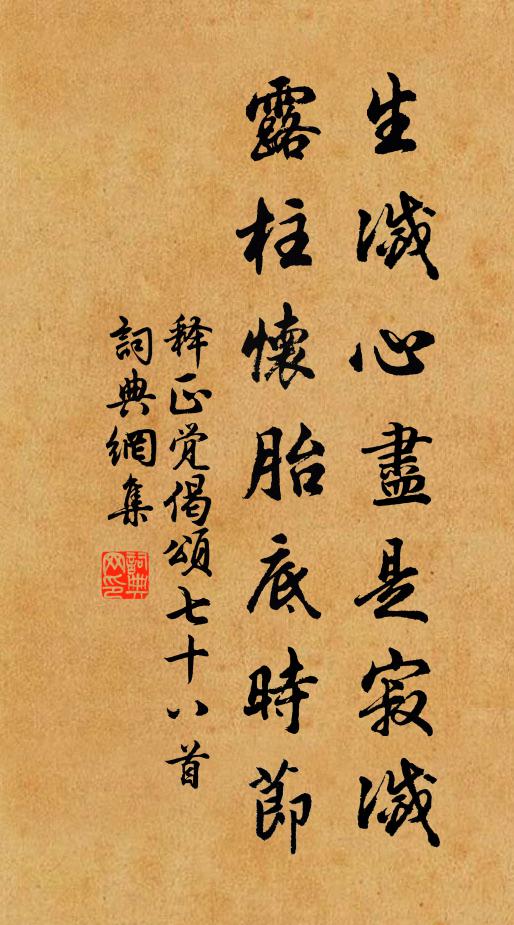 生滅心盡是寂滅
露柱懷胎底時節
释正觉偈頌七十八首
詞典網集
詞典网印